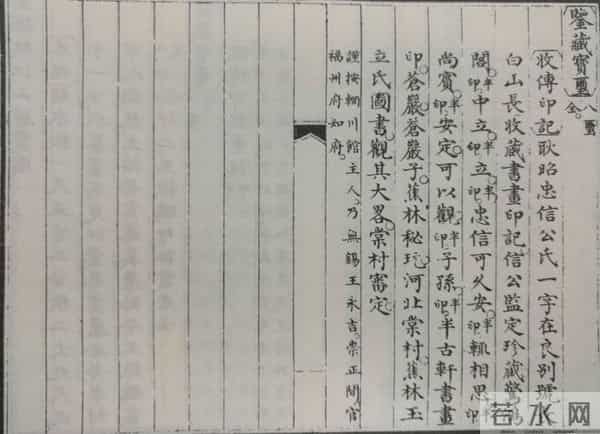 鑒藏寶璽八璽全
收傳印記耿昭忠信公氏一字在良别號
白山長收藏書畫印記信公監定珍藏
閣半印中立半印立半印忠信可久安半印輒相思半印
尚賓半印安定可以觀半印子孫半印半古軒書畫
印蒼巖蒼巖子蕉林秘玩河北棠村蕉林玉
立氏圖書觀其大畧棠村審定
謹按輞川館主人乃無錫王永吉崇正間官
福州府知府
若水网